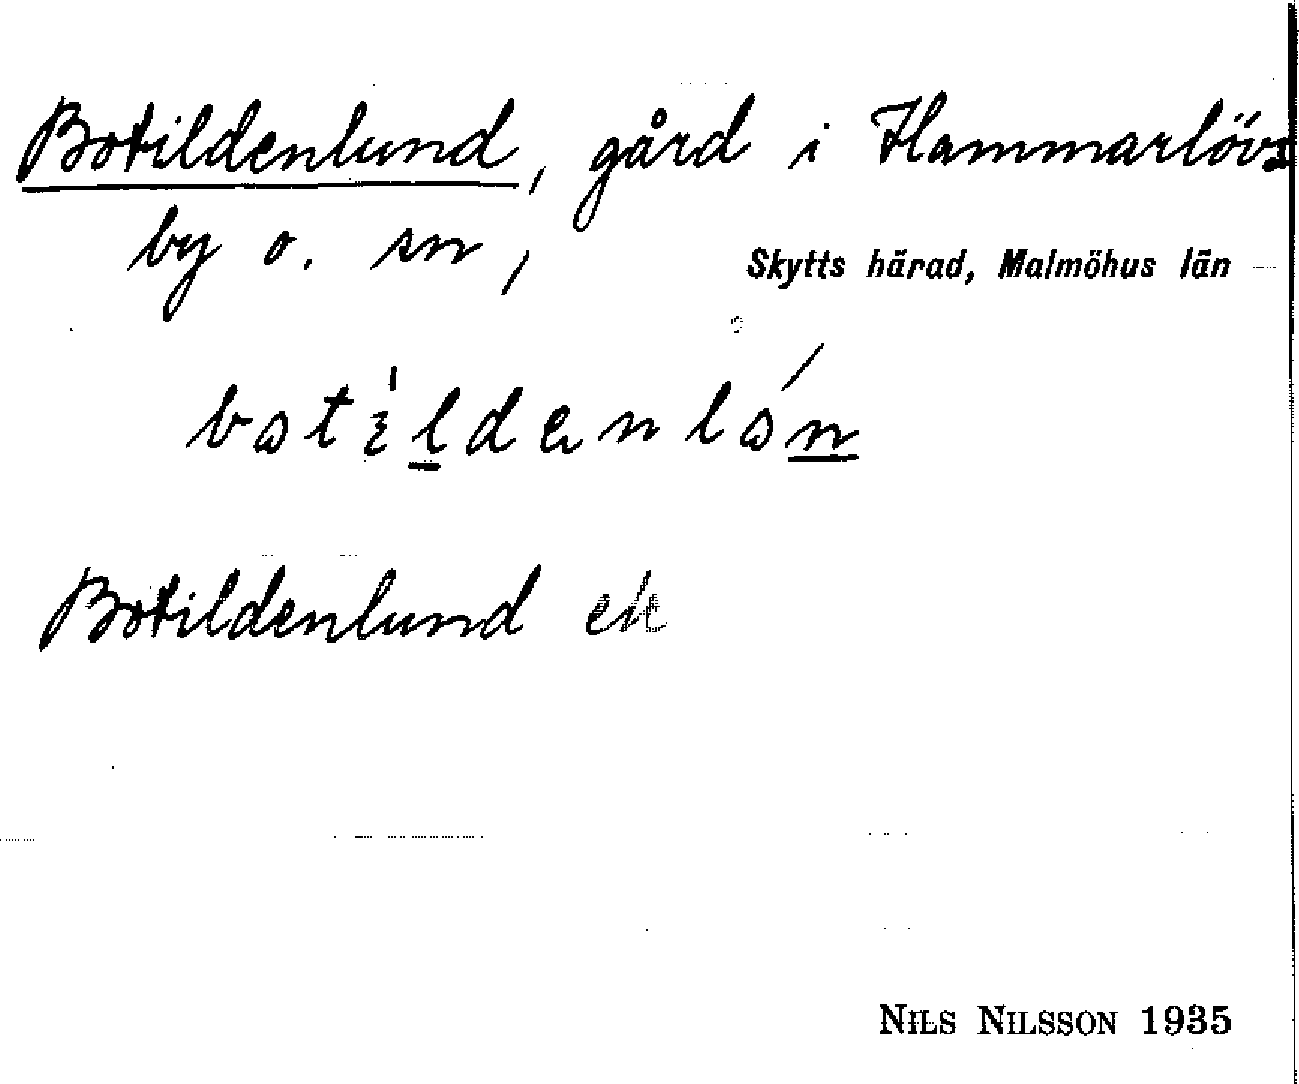 Botildenlund, gård i Hammarlövs
by o. sn,
Skytts härad, Malmöhus län
Botildenlund ek
NILS NILSSON 1935